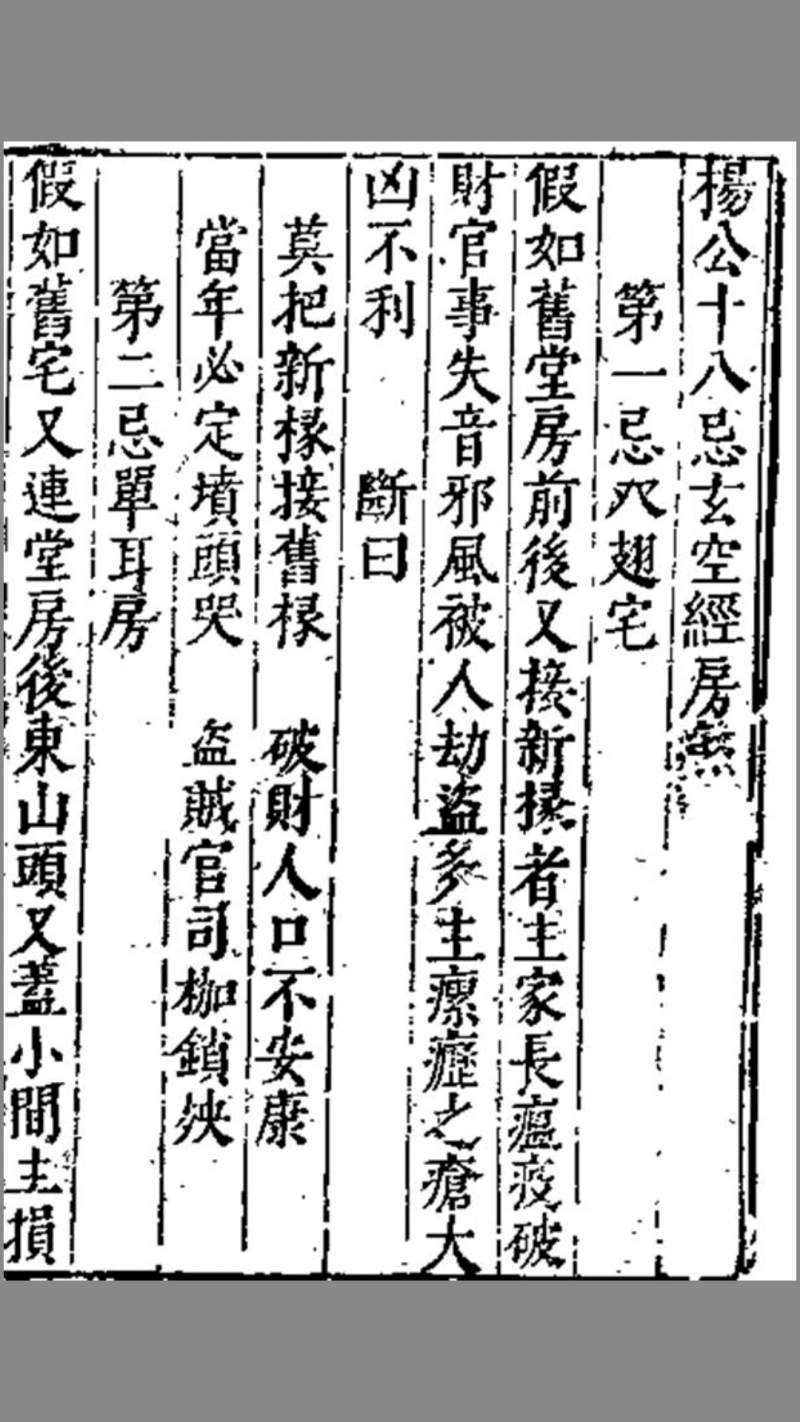 楊公十八忌玄空經房
第一忌翅宅
假如舊堂房前後又接新椽者主家長瘟疫破
財官事失音邪風被人劫盜多生瘰癧之瘡大
凶不利 斷曰
莫把新椽接舊椽 破財人口不安康
當年必定墳頭哭 盜賊官司枷鎖殃
第二忌單耳房
假如舊宅又連堂房後東山頭又蓋小間主損